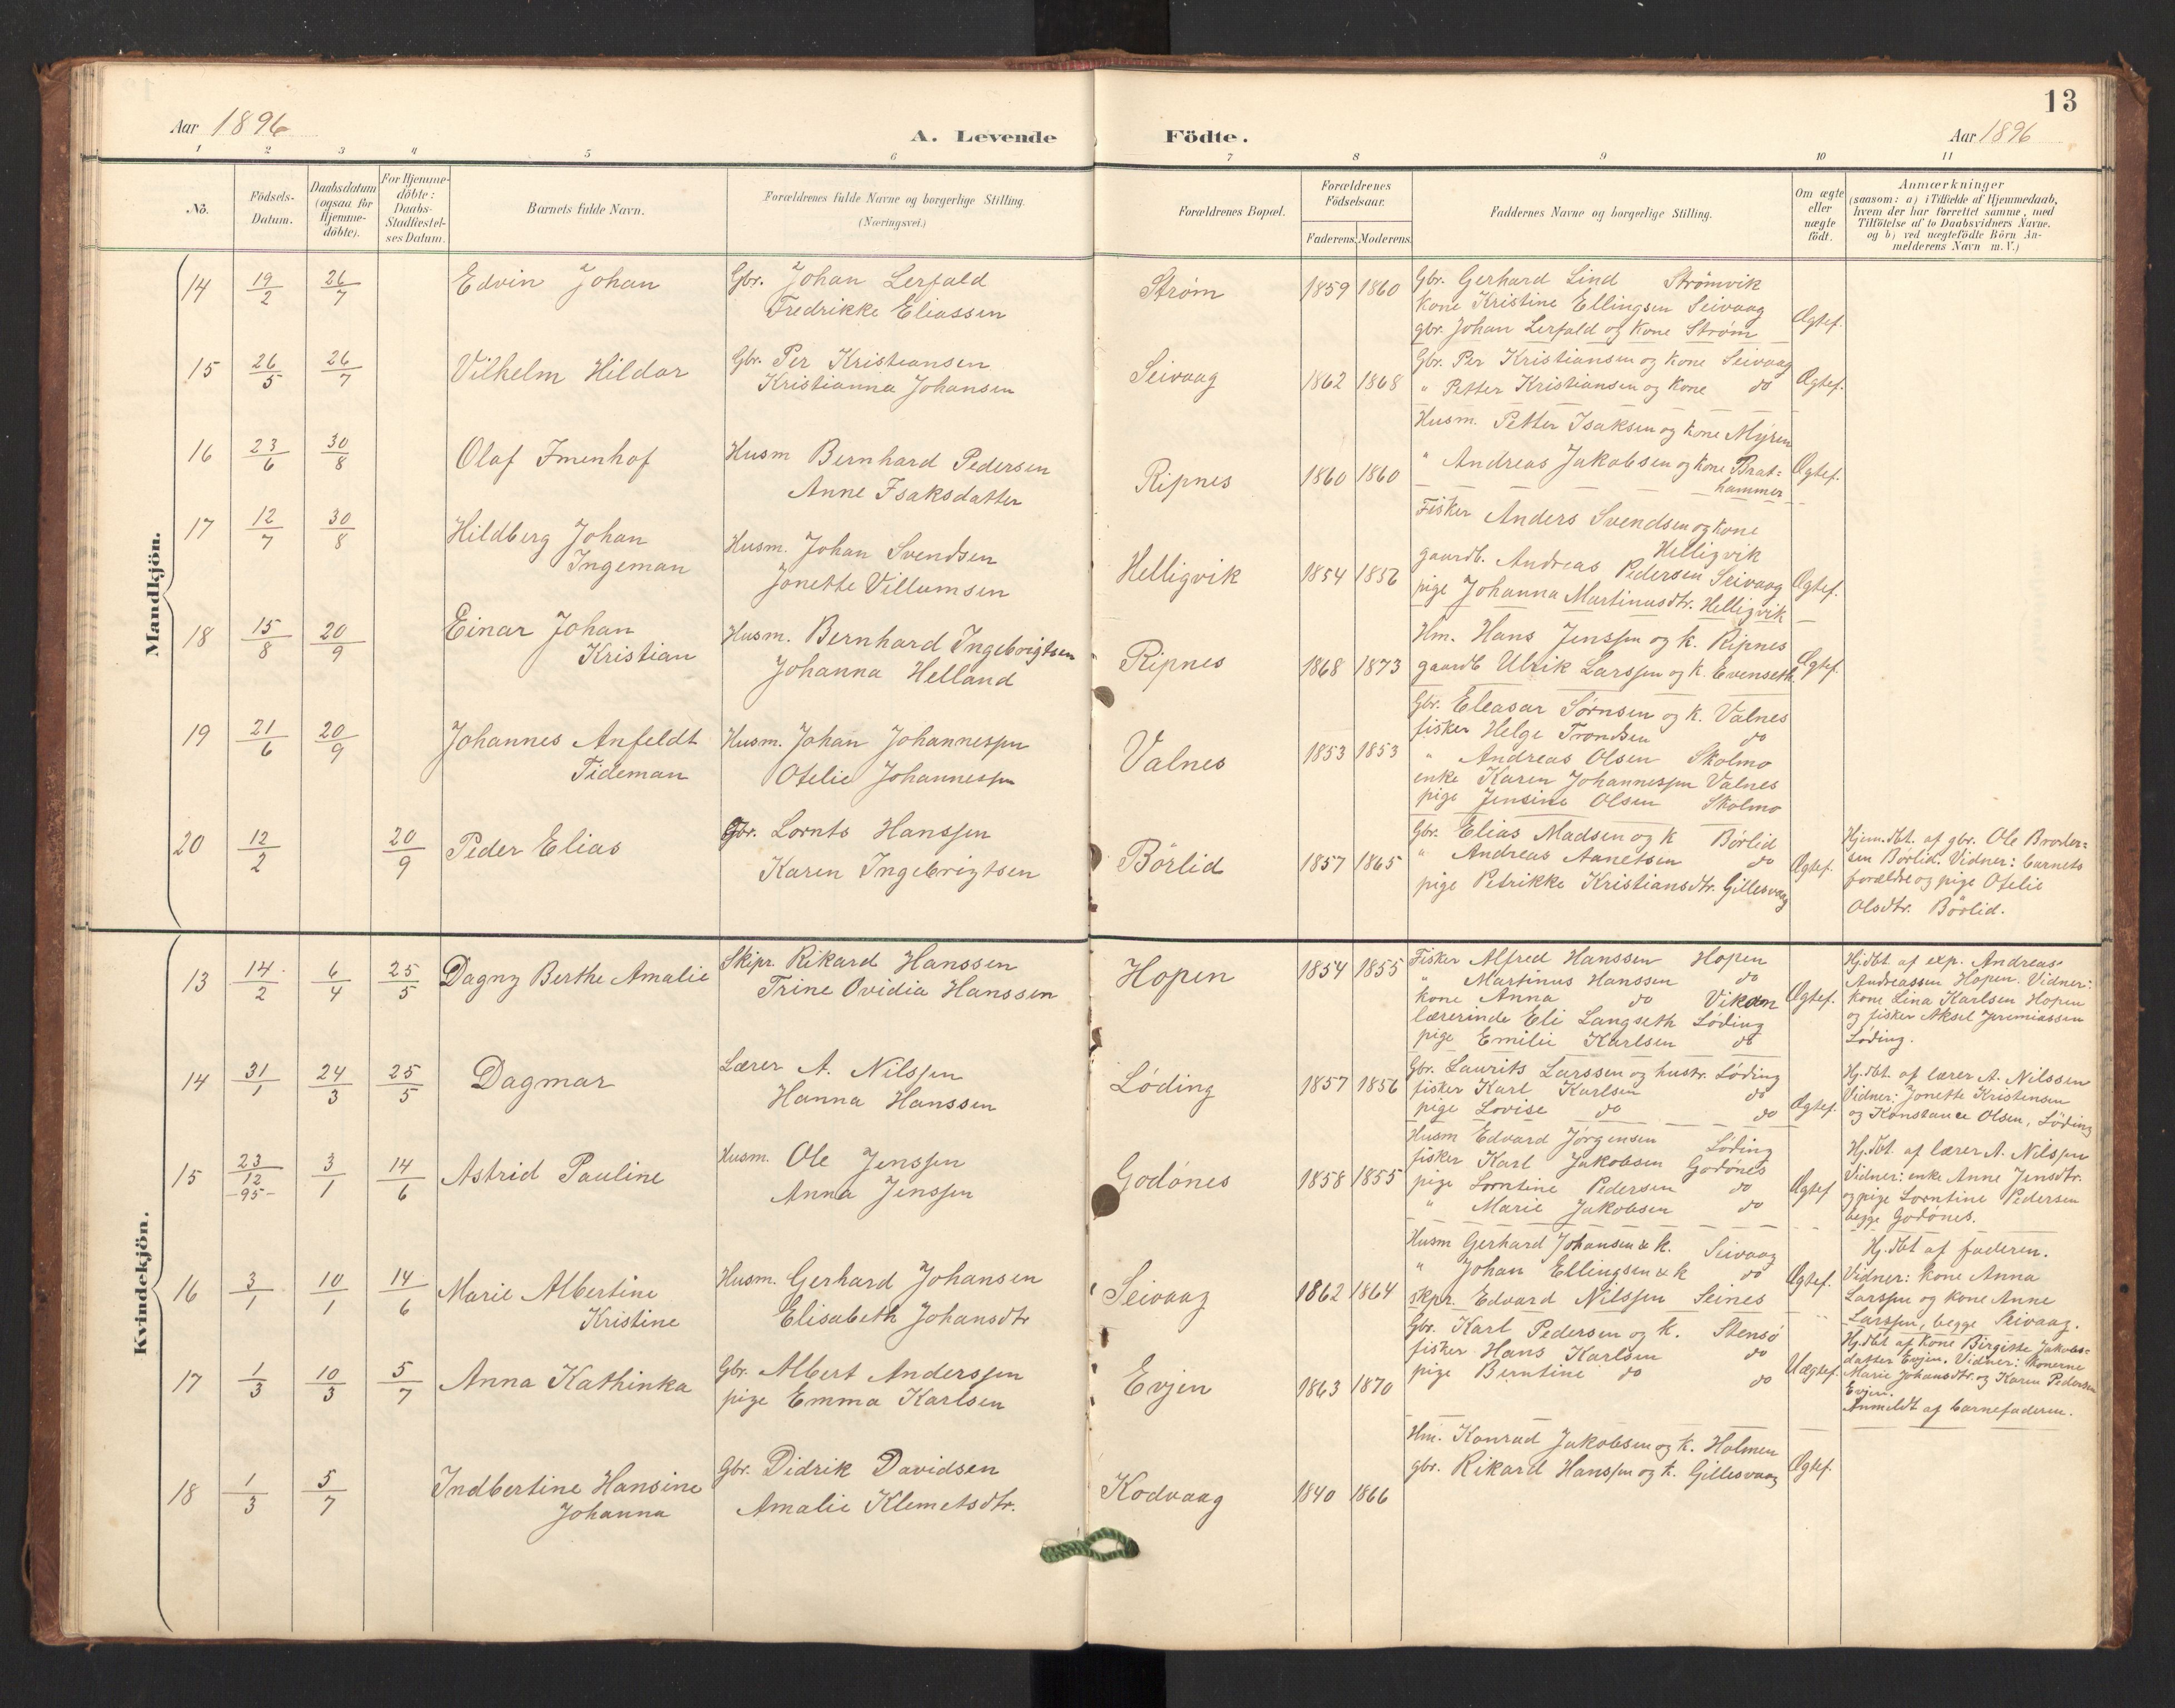 13
Aar 1896
A. Levende Födte.
Aar 1896
1 2 3 4 5 6 7 8 9 10 11
No.
Födsels-Datum.
Daabsdatum (ogsaa for Hjemme-döbte).
For Hjemme-döbte: Daabs-Stadfæstel-ses Datum.
Barnets fulde Navn.
Forældrenes fulde Navne og borgerlige Stilling. (Næringsvei.)
Forældrenes Bopæl.
Forældrenes Födselsaar.
Faderens. Moderens.
Faddernes Navne og borgerlige Stilling.
Om ægte eller uægte födt.
Anmærkninger
(saasom: a) i Tilfælde af Hjemmedaab,
hvem der har forrettet samme, med
Tilföielse af to Daabsvidners Navne.
og b) ved uægtefödte Börn An-
melderens Navn m. V.)
Mandkjön.
14 19/2 26/7 Edvin Johan
Gbr. Johan Lerfald
Fredrikke Eliassen
Strøm 1859 1860
Gbr. Gerhard Lind Strømvik
kone Kristine Ellingsen Seivaag
gbr. Johan Lerfald og kone Strøm
Ægtef.
15 26/5 26/7 Vilhelm Hildor
Gbr. Per Kristiansen
Kristianna Johansen
Seivaag 1862 1868
Gbr. Per Kristiansen og kone Seivaag
" Petter Kristiansen og kone do
Ægtef.
16 23/6 30/8 Olaf Imenhof
Husm Bernhard Pedersen
Anne Isaksdatter
Ripnes 1860 1860
Husm. Petter Isaksen og kone Myren
" Andreas Jakobsen og kone Brat=
hammer
Ægtef.
17 12/7 30/8 Hildberg Johan
Ingeman
Husm. Johan Svendsen
Jonette Villumsen
Helligvik 1854 1856
Fisker Anders Svendsen og kone
Helligvik
gaardb. Andreas Pedersen Seivaag
pige Johanna Martinusdtr. Helligvik
Ægtef.
18 15/8 20/9 Einar Johan
Kristian
Husm. Bernhard Ingebrigtsen
Johanna Helland
Ripnes 1868 1873
Hm. Hans Jenssen og k. Ripnes
gaardb Ulrik Larssen og k. Evenseth
Ægtef.
19 21/6 20/9 Johannes Anfeldt
Tideman
Husm. Johan Johannessen
Otelie Johannessen
Valnes 1853 1853
Gbr. Eleasar Sørnsen og k. Valnes
fisker Helge Trondsen do
" Andreas Olsen Skolmo
enke Karen Johannessen Valnes
pige Jensine Olsen Skolmo
20 12/2 20/9 Peder Elias
Gbr. Lornts Hanssen
Karen Ingebrigtsen
Börlid 1857 1865
Gbr. Elias Madsen og k Børlid
" Andreas Aanetsen do
pige Petrikke Kristiansdtr. Gillesvaag
Ægtef.
Hjem.dbt. af gbr. Ole Broder=
sen Børlid. Vidner: barnets
forældre og pige Otelie
Olsdtr. Börlid.
Kvindekjön.
13 14/2 6/4 25/5 Dagny Berthe Amalie
Skipr. Rikard Hanssen
Trine Ovidia Hanssen
Hopen 1854 1855
Fisker Alfred Hanssen Hopen
" Martinus Hanssen do
kone Anna do Vikan
lærerinde Eli Langseth Løding
pige Emilie Karlsen do
Ægtef.
Hj.dbt af exp. Andreas
Andreassen Hopen. Vidner:
kone Lina Karlsen Hopen
og fisker Aksel Jeremiassen
Löding.
14 31/1 24/3 25/5 Dagmar
Lærer A. Nilssen
Hanna Hanssen
Löding 1857 1856
Gbr. Laurits Larssen og hustr. Löding
fisker Karl Karlsen do
pige Lovise do do
Ægtef.
Hj.dbt. af lærer A. Nilssen
Vidner: Jonette Kristensen
og Konstance Olsen, Löding
15 23/12 -95- 3/1 14/6 Astrid Pauline
Husm. Ole Jenssen
Anna Jenssen
Godönes 1858 1855
Husm Edvard Jørgensen Löding
fisker Karl Jakobsen Godönes
pige Lorntine Pedersen do
" Marie Jakobsen do
Ægtef
Hj.dbt. af lærer A. Nilssen
Vidner: enke Anne Jensdtr.
og pige Lorntine Pedersen
begge Godönes.
16 3/1 10/1 14/6 Marie Albertine
Kristine
Husm. Gerhard Johansen
Elisabeth Johansdtr
Seivaag 1862 1864
Husm Gerhard Johansen & k. Seivaag
" Johan Ellingsen & k do
skpr. Edvard Nilssen Seines
Ægtef.
Hj.dbt af faderen.
Vidner: kone Anna
Larssen og kone Anne
Larssen, begge Seivaag.
17 1/3 10/3 5/7 Anna Kathinka
Gbr. Albert Anderssen
pige Emma Karlsen
Evjen 1863 1870
Gbr. Karl Pedersen og k. Stensö
fisker Hans Karlsen do
pige Berntine do do
Uægtef.
Hj.dbt af kone Birgitte Jakobs=
datter Evjen. Vidner: konerne
Marie Johansdtr. og Karen Pedersen
Evjen.
Anmeldt af barnefaderen.
18 1/3 5/7 Indbertine Hansine
Johanna
Gbr. Didrik Davidsen
Amalie Klemetsdtr.
Kodvaag 1840 1866
Hm. Konrad Jakobsen og k. Holmen
gbr. Rikard Hanssen og k. Gillesvaag
Ægtef.